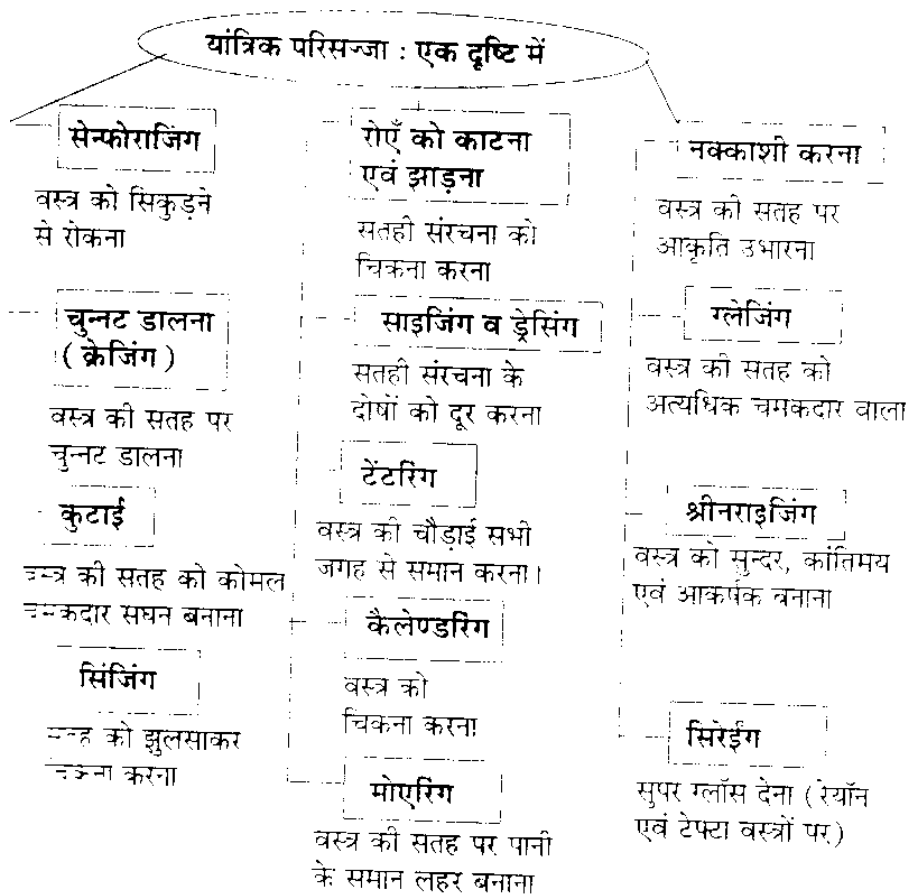 यांत्रिक परिसज्जा : एक दृष्टि में
सेन्फोराजिंग
वस्त्र को सिकुड़ने
से रोकना
चुन्नट डालना
( क्रेजिंग )
वस्त्र की सतह पर
चुन्नट डालना
कुटाई
वस्त्र की सतह को कोमल
चमकदार सघन बनाना
सिंजिंग
सतह को झुलसाकर
चिकना करना
रोएँ को काटना
एवं झाड़ना
सतही संरचना को
चिकना करना
साइजिंग व ड्रेसिंग
सतही संरचना के
दोषों को दूर करना
टेंटरिंग
वस्त्र की चौड़ाई सभी
जगह से समान करना।
कैलेण्डरिंग
वस्त्र को
चिकना करना
मोएरिंग
वस्त्र की सतह पर पानी
के समान लहर बनाना
नक्काशी करना
वस्त्र की सतह पर
आकृति उभारना
ग्लेजिंग
वस्त्र की सतह को
अत्यधिक चमकदार वाला
श्रीनराइजिंग
वस्त्र को सुन्दर, कांतिमय
एवं आकर्षक बनाना
सिरेईंग
सुपर ग्लॉस देना (रेयॉन
एवं टेफ्टा वस्त्रों पर)